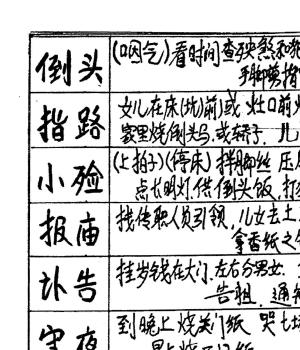 倒头
(咽气)看时间查殃煞
指路
女儿在床(坑)前)或 灶口前
里烧倒头马.或轿子.儿
小殓
(上拍子)(停床)拌脚丝 压
点长明灯.供倒头饭,打
报庙
找传职人员引领,儿女去土
拿香纸之
讣告
挂岁钱在大门.左右分男女.
告祖.通
守夜
到晚上烧关门纸 哭七